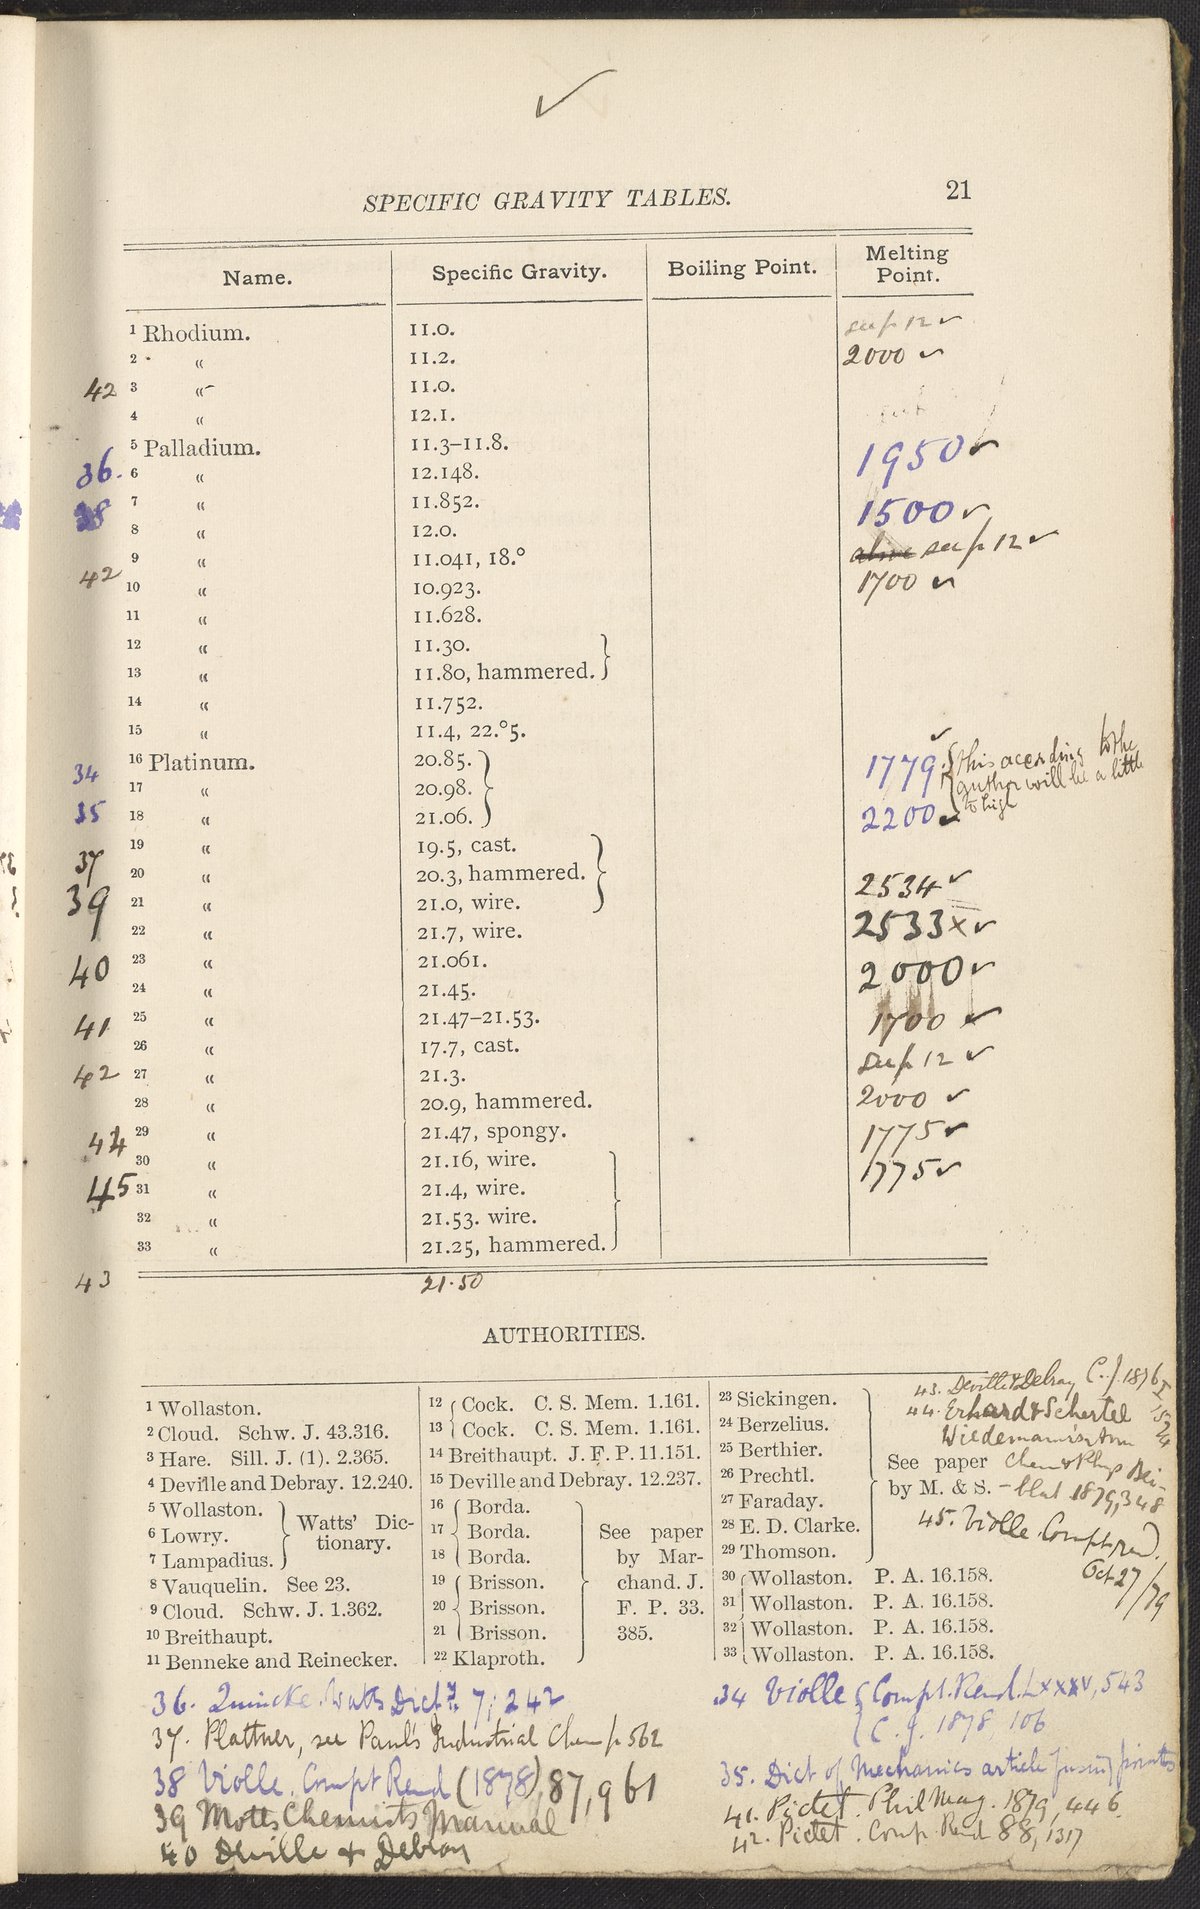 ✓
SPECIFIC GRAVITY TABLES. 21
Name. Specific Gravity. Boiling Point. Melting Point.
1 Rhodium. 11.0. sup 12 ✓
2 “ 11.2. 2000 ✓
42 3 “ 11.0.
4 “ 12.1.
5 Palladium. 11.3–11.8. 1950 ✓
36. 6 “ 12.148.
38 7 “ 11.852. 1500 ✓
8 “ 12.0.
9 “ 11.041, 18.° sup 12 ✓
42 10 “ 10.923. 1700 ✓
11 “ 11.628.
12 “ 11.30.
13 “ 11.80, hammered.
14 “ 11.752.
15 “ 11.4, 22.°5.
34 16 Platinum. 20.85. 1779. ✓ { this acording to the
17 “ 20.98. author will be a little
35 18 “ 21.06. 2200 ✓ to high
19 “ 19.5, cast.
37 20 “ 20.3, hammered. 2534 ✓
39 21 “ 21.0, wire.
22 “ 21.7, wire. 2533 × ✓
40 23 “ 21.061. 2000 ✓
24 “ 21.45.
41 25 “ 21.47–21.53. 1700 ✓
26 “ 17.7, cast. sup 12 ✓
42 27 “ 21.3.
28 “ 20.9, hammered. 2000 ✓
44 29 “ 21.47, spongy. 1775 ✓
30 “ 21.16, wire. 1775 ✓
45 31 “ 21.4, wire.
32 “ 21.53. wire.
33 “ 21.25, hammered.
43 21.50
AUTHORITIES.
1 Wollaston.
2 Cloud. Schw. J. 43.316.
3 Hare. Sill. J. (1). 2.365.
4 Deville and Debray. 12.240.
5 Wollaston.
6 Lowry.
7 Lampadius.
Watts' Dic-
tionary.
8 Vauquelin. See 23.
9 Cloud. Schw. J. 1.362.
10 Breithaupt.
11 Benneke and Reinecker.
12 Cock. C. S. Mem. 1.161.
13 Cock. C. S. Mem. 1.161.
14 Breithaupt. J. F. P. 11.151.
15 Deville and Debray. 12.237.
16 Borda.
17 Borda.
18 Borda.
19 Brisson.
20 Brisson.
21 Brisson.
22 Klaproth.
See paper
by Mar-
chand. J.
F. P. 33.
385.
23 Sickingen.
24 Berzelius.
25 Berthier.
26 Prechtl.
27 Faraday.
28 E. D. Clarke.
29 Thomson.
See paper
by M. & S.
30 Wollaston. P. A. 16.158.
31 Wollaston. P. A. 16.158.
32 Wollaston. P. A. 16.158.
33 Wollaston. P. A. 16.158.
43. Deville & Debray C. J. 1876 I
44. Erhard & Schertel
Chem & Phys Bei-
blat 1879, 348
45. Violle Compt rend.
Oct 27/79
36. Quincke Watts Dicty 7, 242
37. Plattner, see Paul's Industrial Chem p 562
38 Violle. Compt Rend (1878), 87, 961
39 Motts Chemists Manual
40 Deville & Debray
34 Violle { Compt. Rend. LXXXV, 543
C. J. 1878, 106
35. Dict of Mechanics article fusing points
41. Pictet. Phil Mag. 1879, 446.
42. Pictet. Comp. Rend 88, 1317